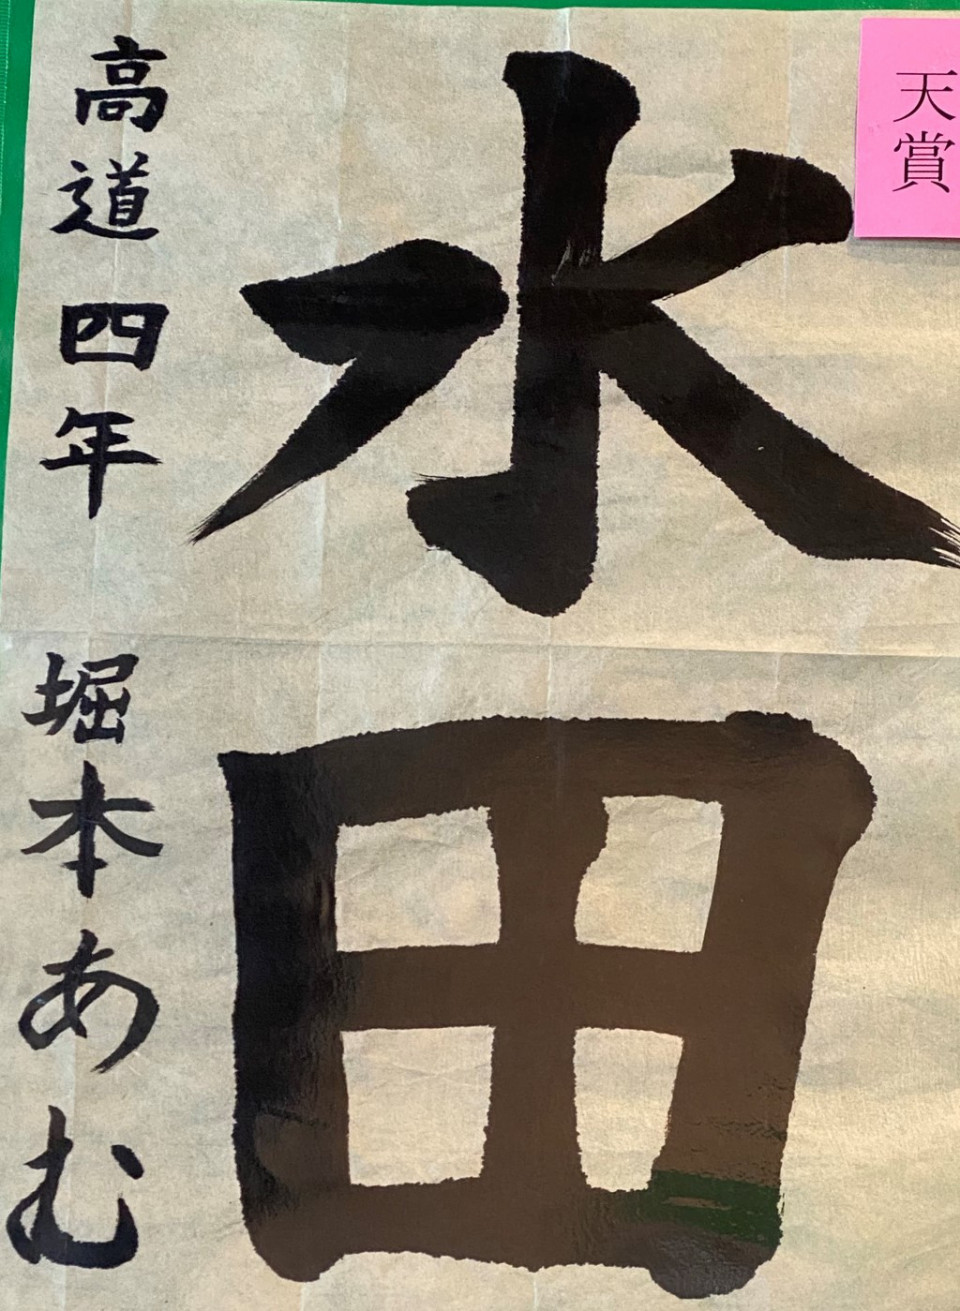 天賞
水田
高道四年 堀本あむ